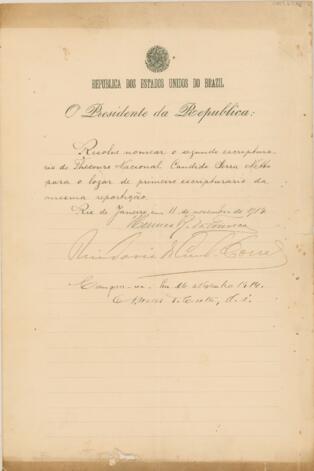 REPUBLICA DOS ESTADOS UNIDOS DO BRAZIL
O Presidente da Republica:
Resolve nomear o segundo escriptura-
rio do Thesouro Nacional Candido Serra Netto
para o logar de primeiro escripturario da
mesma repartição.
Rio de Janeiro, em 11 de novembro de 1914
Hermes R. da Fonseca
Rivadavia da Cunha Corrêa
Cumpra-se. Em 16